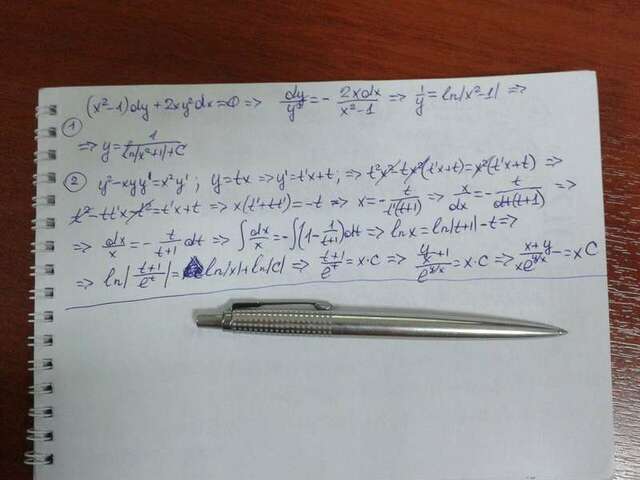 ① (x²-1)dy + 2xy²dx = 0 => dy/y² = - 2xdx/x²-1 => 1/y = ln|x²-1| =>
=> y = 1/ln|x²+1|+C
② y²-xyy' = x²y' ; y=tx => y'=t'x+t; => t²x²-tx²(t'x+t) = x²(t'x+t) =>
t²-tt'x-t² = t'x+t => x(t'+tt') = -t => x = - t/t'(t+1) => x/dx = - t/dt(t+1) =>
=> dx/x = - t/t+1 dt => ∫dx/x = -∫(1-1/t+1)dt => ln x = ln|t+1|-t =>
=> ln|t+1/eᵗ| = ln|x|+ln|C| => t+1/eᵗ = x·C => y/x+1/e^y/x = x·C => x+y/xe^y/x = xC